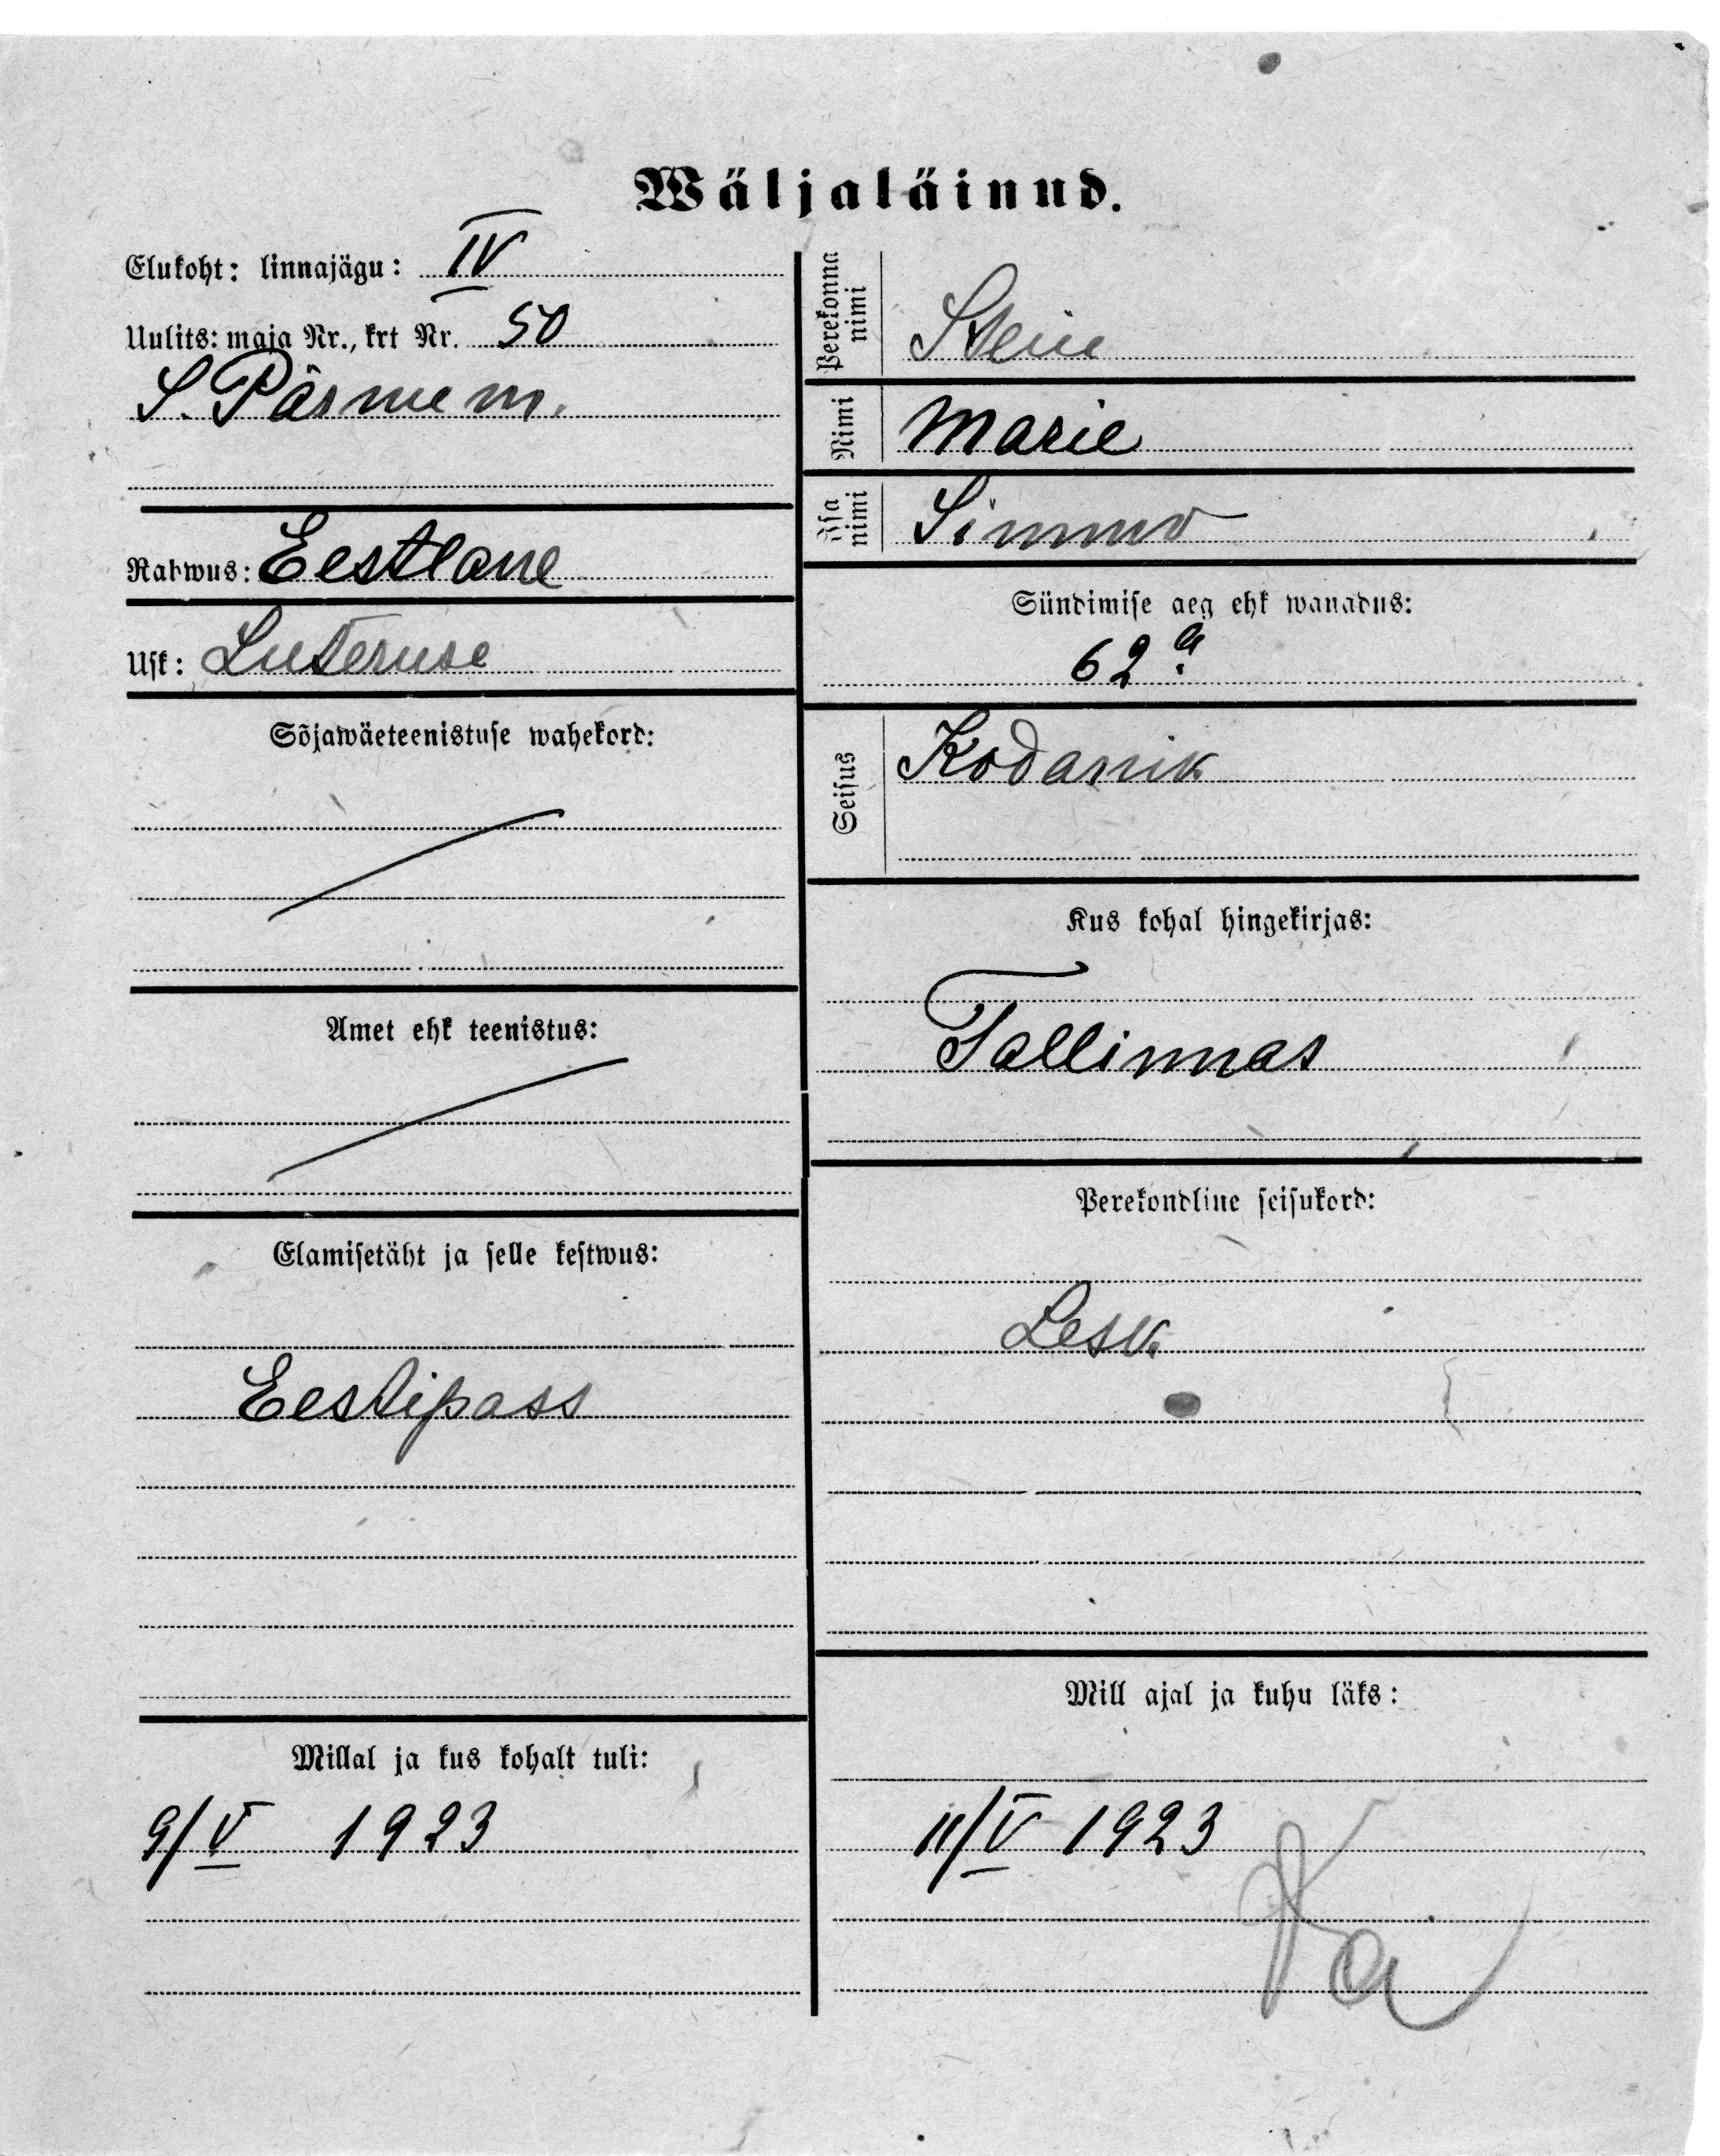 Wäljaläinud.
Elukoht: linnajägu: IV
Uulits: maja Nr., krt Nr. 50
S. Pärnu m.
Rahwus: Eestlane
Usk: Luteruse
Sõjawäeteenistuse wahekord:
Amet ehk teenistus:
Elamisetäht ja selle kestwus:
Eestipass
Millal ja kus kohalt tuli:
9/V 1923
Perekonna nimi
Stein
Nimi Marie
Isa nimi Simmo
Sündimise aeg ehk wanadus:
62 a.
Seisus Kodanik
Kus kohal hingekirjas:
Tallinnas
Perekondline seisukord:
Lesk.
Mill ajal ja kuhu läks:
11/V 1923